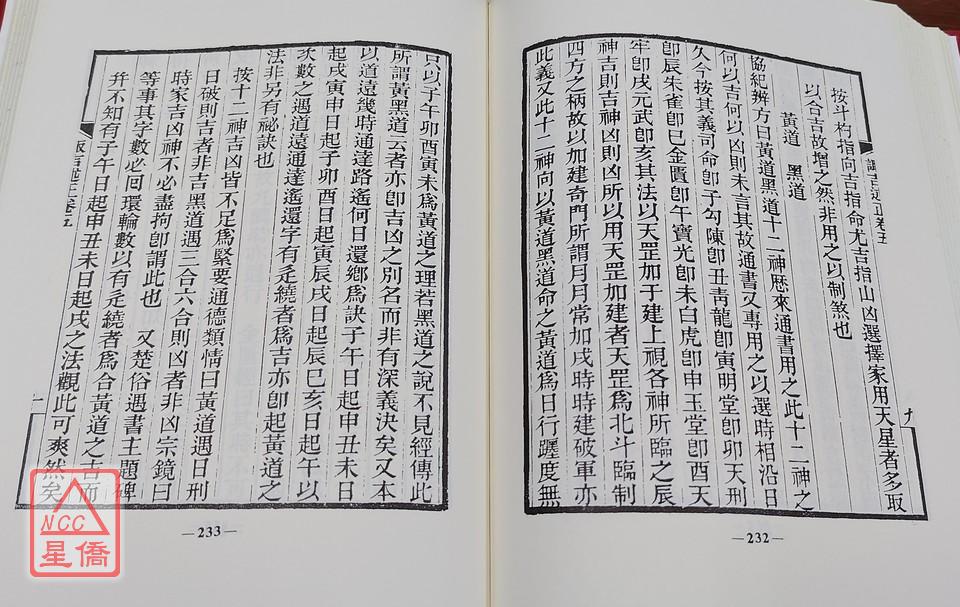 按斗杓指向吉指命尤吉指山凶選擇家用天星者多取
以合吉故增之然非用之以制煞也
黃道 黑道
協紀辨方曰黃道黑道十二神歷來通書用之此十二神之
何以吉何以凶則未言其故通書又專用之以選時相沿日
久今按其義司命卽子勾陳卽丑靑龍卽寅明堂卽卯天刑
卽辰朱雀卽巳金匱卽午寶光卽未白虎卽申玉堂卽酉天
牢卽戌元武卽亥其法以天罡加于建上視各神所臨之辰
神吉則吉神凶則凶所以用天罡加建者天罡爲北斗臨制
四方之柄故以加建奇門所謂月月常加戌時時建破軍亦
此義又此十二神向以黃道黑道命之黃道爲日行躔度無
九
—232—
以子午卯酉寅未爲黃道之理若黑道之說不見經傳此
所謂黃黑道云者亦卽吉凶之別名而非有深義決矣又本
以道遠幾時通達路遙何日還鄉爲訣子午日起申丑未日
起戌寅申日起子卯酉日起寅辰戌日起辰巳亥日起午以
次數之遇道遠通達遙還字有辵繞者爲吉亦卽起黃道之
法非另有祕訣也
按十二神吉凶皆不足爲緊要通德類情曰黃道遇日刑
日破則吉者非吉黑道遇三合六合則凶者非凶宗鏡曰
時家吉凶神不必盡拘卽謂此也 又楚俗遇書主題碑
等事其字數必囘環輪數以有辵繞者爲合黃道之吉而
幷不知有子午日起申丑未日起戌之法觀此可爽然矣
—233—
NCC
星僑